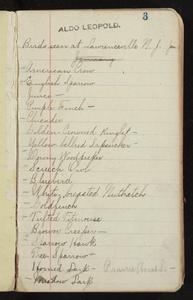 3
ALDO LEOPOLD.
Birds seen at Lawrenceville N.J. Jan
January
American Crow
English Sparrow
Junco
Purple Finch
Chicadee
Golden-Crowned Kinglet
Yellow bellied Sapsucker
Downy Woodpecker
Screech Owl
Bluebird
White breasted Nuthatch
Goldfinch
Tufted Titmouse
Brown Creeper
Sparrow Hawk
Tree Sparrow
Horned Lark - Prairie Horned
Meadow Lark